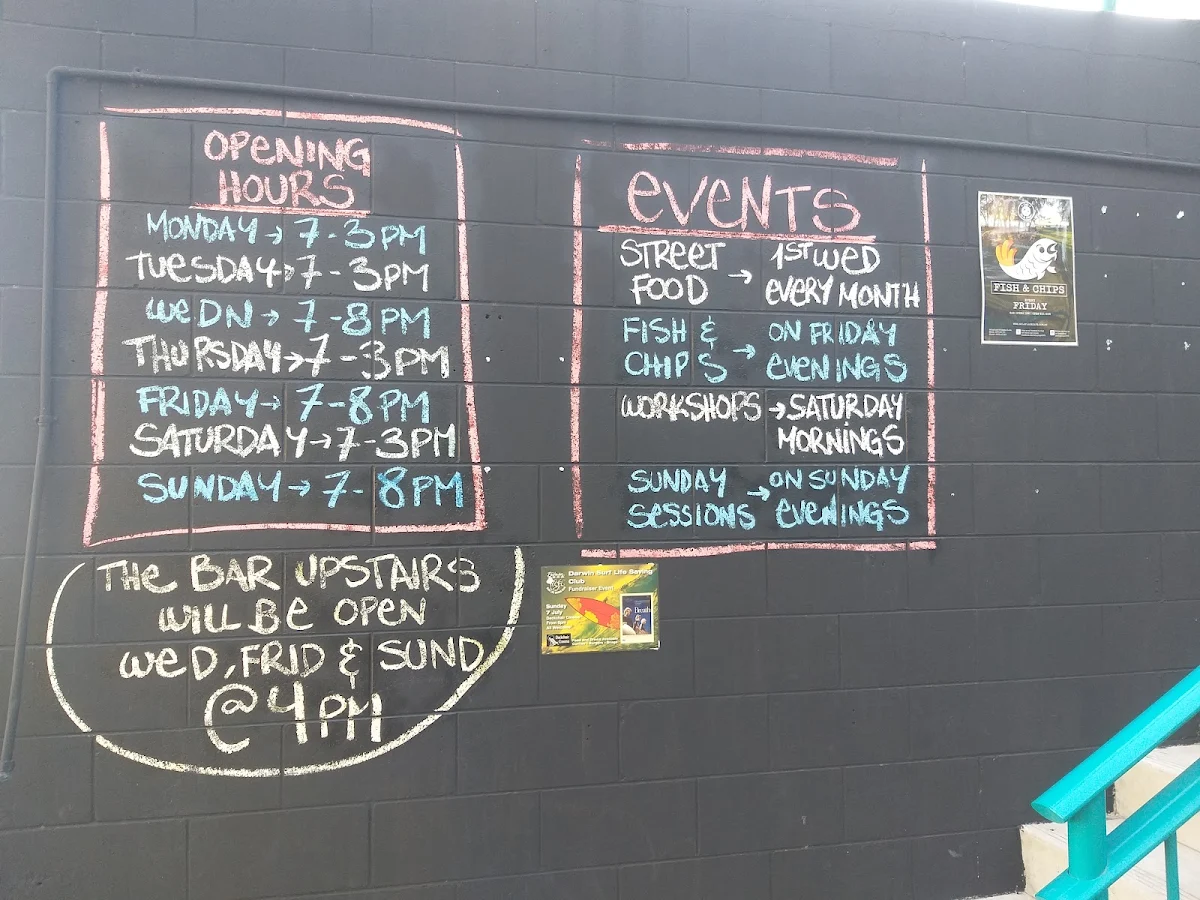 OPENING
HOURS
MONDAY → 7-3PM
TUESDAY → 7-3PM
WEDN → 7-8PM
THURSDAY → 7-3PM
FRIDAY → 7-8PM
SATURDAY → 7-3PM
SUNDAY → 7-8PM
THE BAR UPSTAIRS
WILL BE OPEN
WED, FRID & SUND
@ 4PM
EVENTS
STREET FOOD → 1ST WED
EVERY MONTH
FISH &
CHIPS → ON FRIDAY
EVENINGS
WORKSHOPS → SATURDAY
MORNINGS
SUNDAY
SESSIONS → ON SUNDAY
EVENINGS
FISH & CHIPS
FRIDAY
Darwin Surf Life Saving
Club
Fundraiser Event
Sunday
7 July
Breath